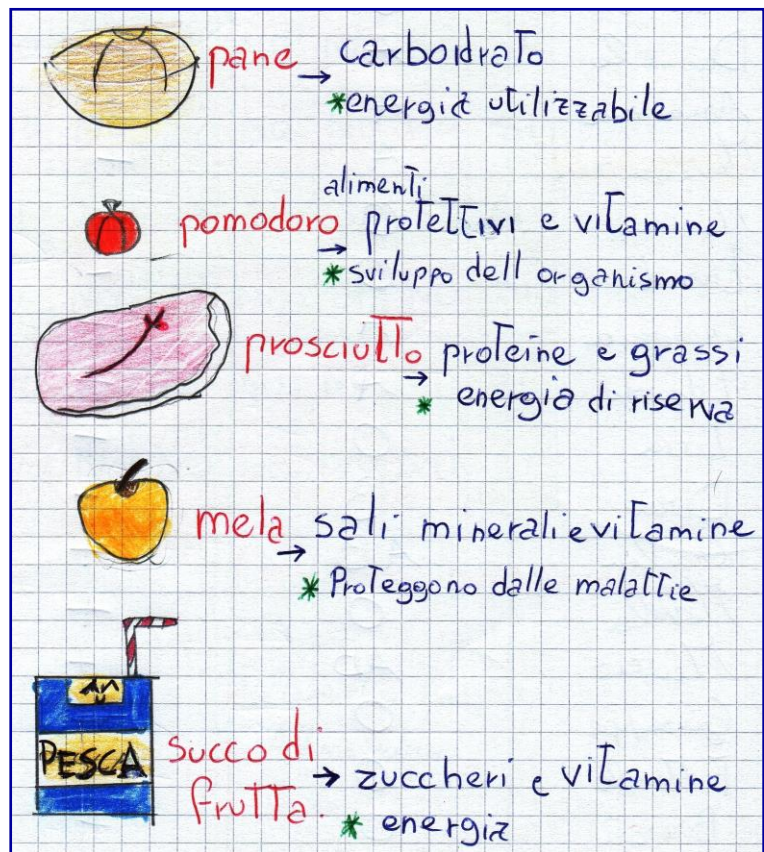 pane → carboidrato
*energia utilizzabile
alimenti
pomodoro → protettivi e vitamine
*sviluppo dell organismo
prosciutto → proteine e grassi
* energia di riserva
mela → sali minerali e vitamine
* Proteggono dalle malattie
PESCA
succo di
frutta. → zuccheri e vitamine
* energia